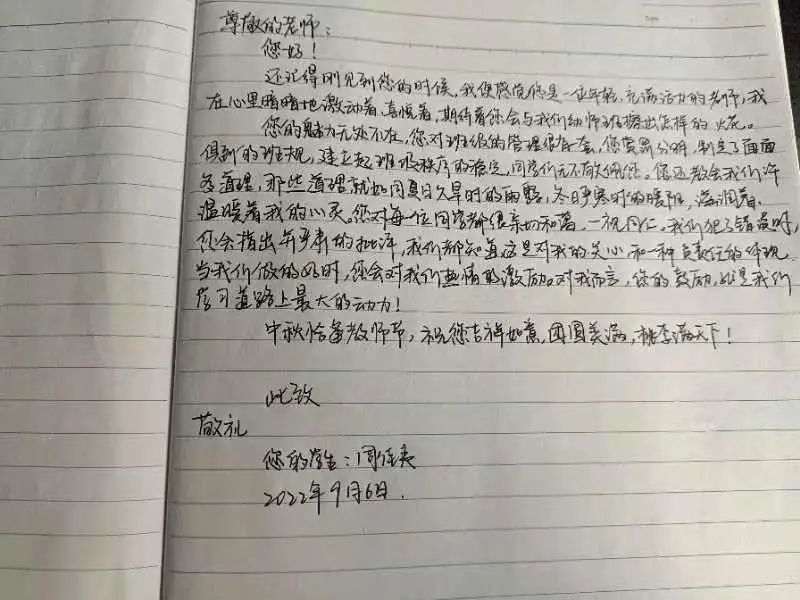 尊敬的老师：
您好！
还记得刚见到您的时候，我便感觉您是一位年轻，充满活力的老师，我
在心里暗暗地激动着，喜悦着，期待着您会与我们幼师班擦出怎样的火花。
您的魅力无处不在，您对班级的管理很齐全，您赏罚分明，制定了面面
俱到的班规，建立起班级秩序的稳定，同学们无不有人佩您。您还教会我们许
多道理，那些道理就如同夏日久旱时的雨露，冬日严寒时的暖阳，滋润着，
温暖着我的心灵。您对每一位同学都很亲切和蔼，一视同仁，我们犯了错误时，
您会指出并严肃的批评，我们都知道这是对我的关心，和一种负责任的体现。
当我们做的好时，您会对我们热情的激励。对我而言，您的鼓励，必是我们
学习道路上最大的动力！
中秋恰备教师节，祝您吉祥如意，团圆美满，桃李满天下！
此致
敬礼
您的学生：
2022年9月6日.